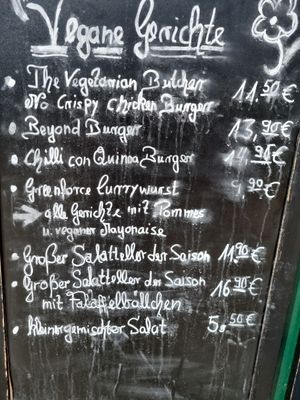 Vegane Gerichte
The Vegetarian Butcher
No Crispy Chicken Burger 11.50€
Beyond Burger 13,90€
Chilli con Quinoa Burger 14,90€
Greenforce Currywurst 9,90€
alle Gerichte mit Pommes
u. veganer Mayonaise
Großer Salatteller der Saison 11,90€
Großer Salatteller der Saison
mit Falaffelbällchen 16,90€
kleiner gemischter Salat 5,50€